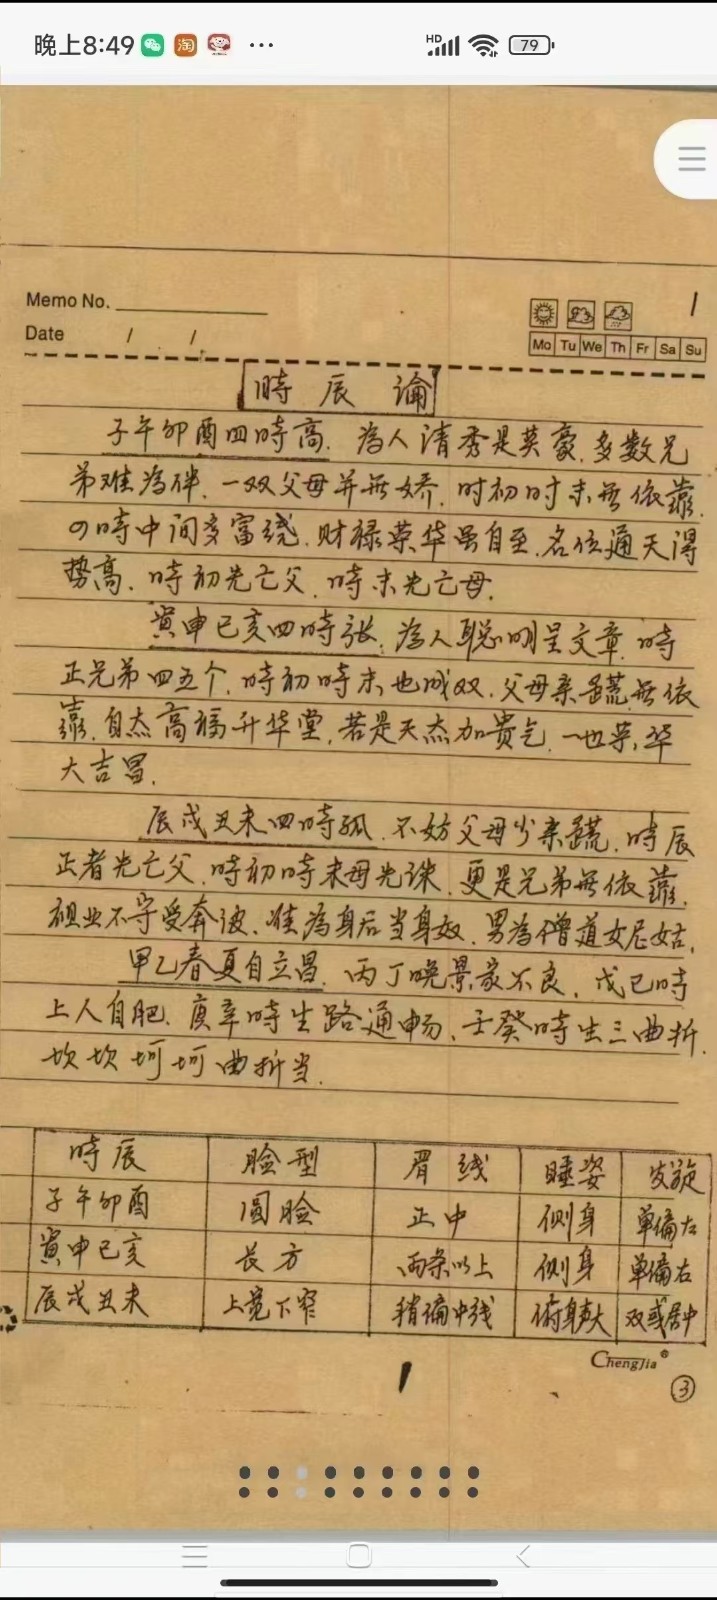 晚上8:49
HD
79
Memo No.
1
Date / /
Mo Tu We Th Fr Sa Su
時辰論
子午卯酉四時高.為人清秀是英豪.多数兄
弟难為伴.一双父母并無娇.时初时末無依靠.
四時中间多富绕.财禄荣华虽自至.名位通天得
势高.時初先亡父.時末先亡母.
寅申巳亥四時张.為人聪明呈文章.時
正兄弟四五个.時初時末也成双.父母亲 無依
靠.自杰高福升华堂.若是天杰加贵气.一世荣.华
大吉昌.
辰戌丑未四時孤.不妨父母少亲 .時辰
正者先亡父.時初時末母先诛.更是兄弟無依靠.
祖业不守受奔波.难為身后当身奴.男為僧道女尼姑.
甲乙春夏自立昌.丙丁晚景家不良.戊己時
上人自肥.庚辛時生路通畅.壬癸時生三曲折.
坎坎坷坷曲折当.
時辰 脸型 唇线 睡姿 发旋
子午卯酉 圆脸 正中 侧身 单偏左
寅申巳亥 长方 两条以上 侧身 单偏右
辰戌丑未 上宽下窄 稍偏中线 俯身大 双或居中
ChengJia®
③